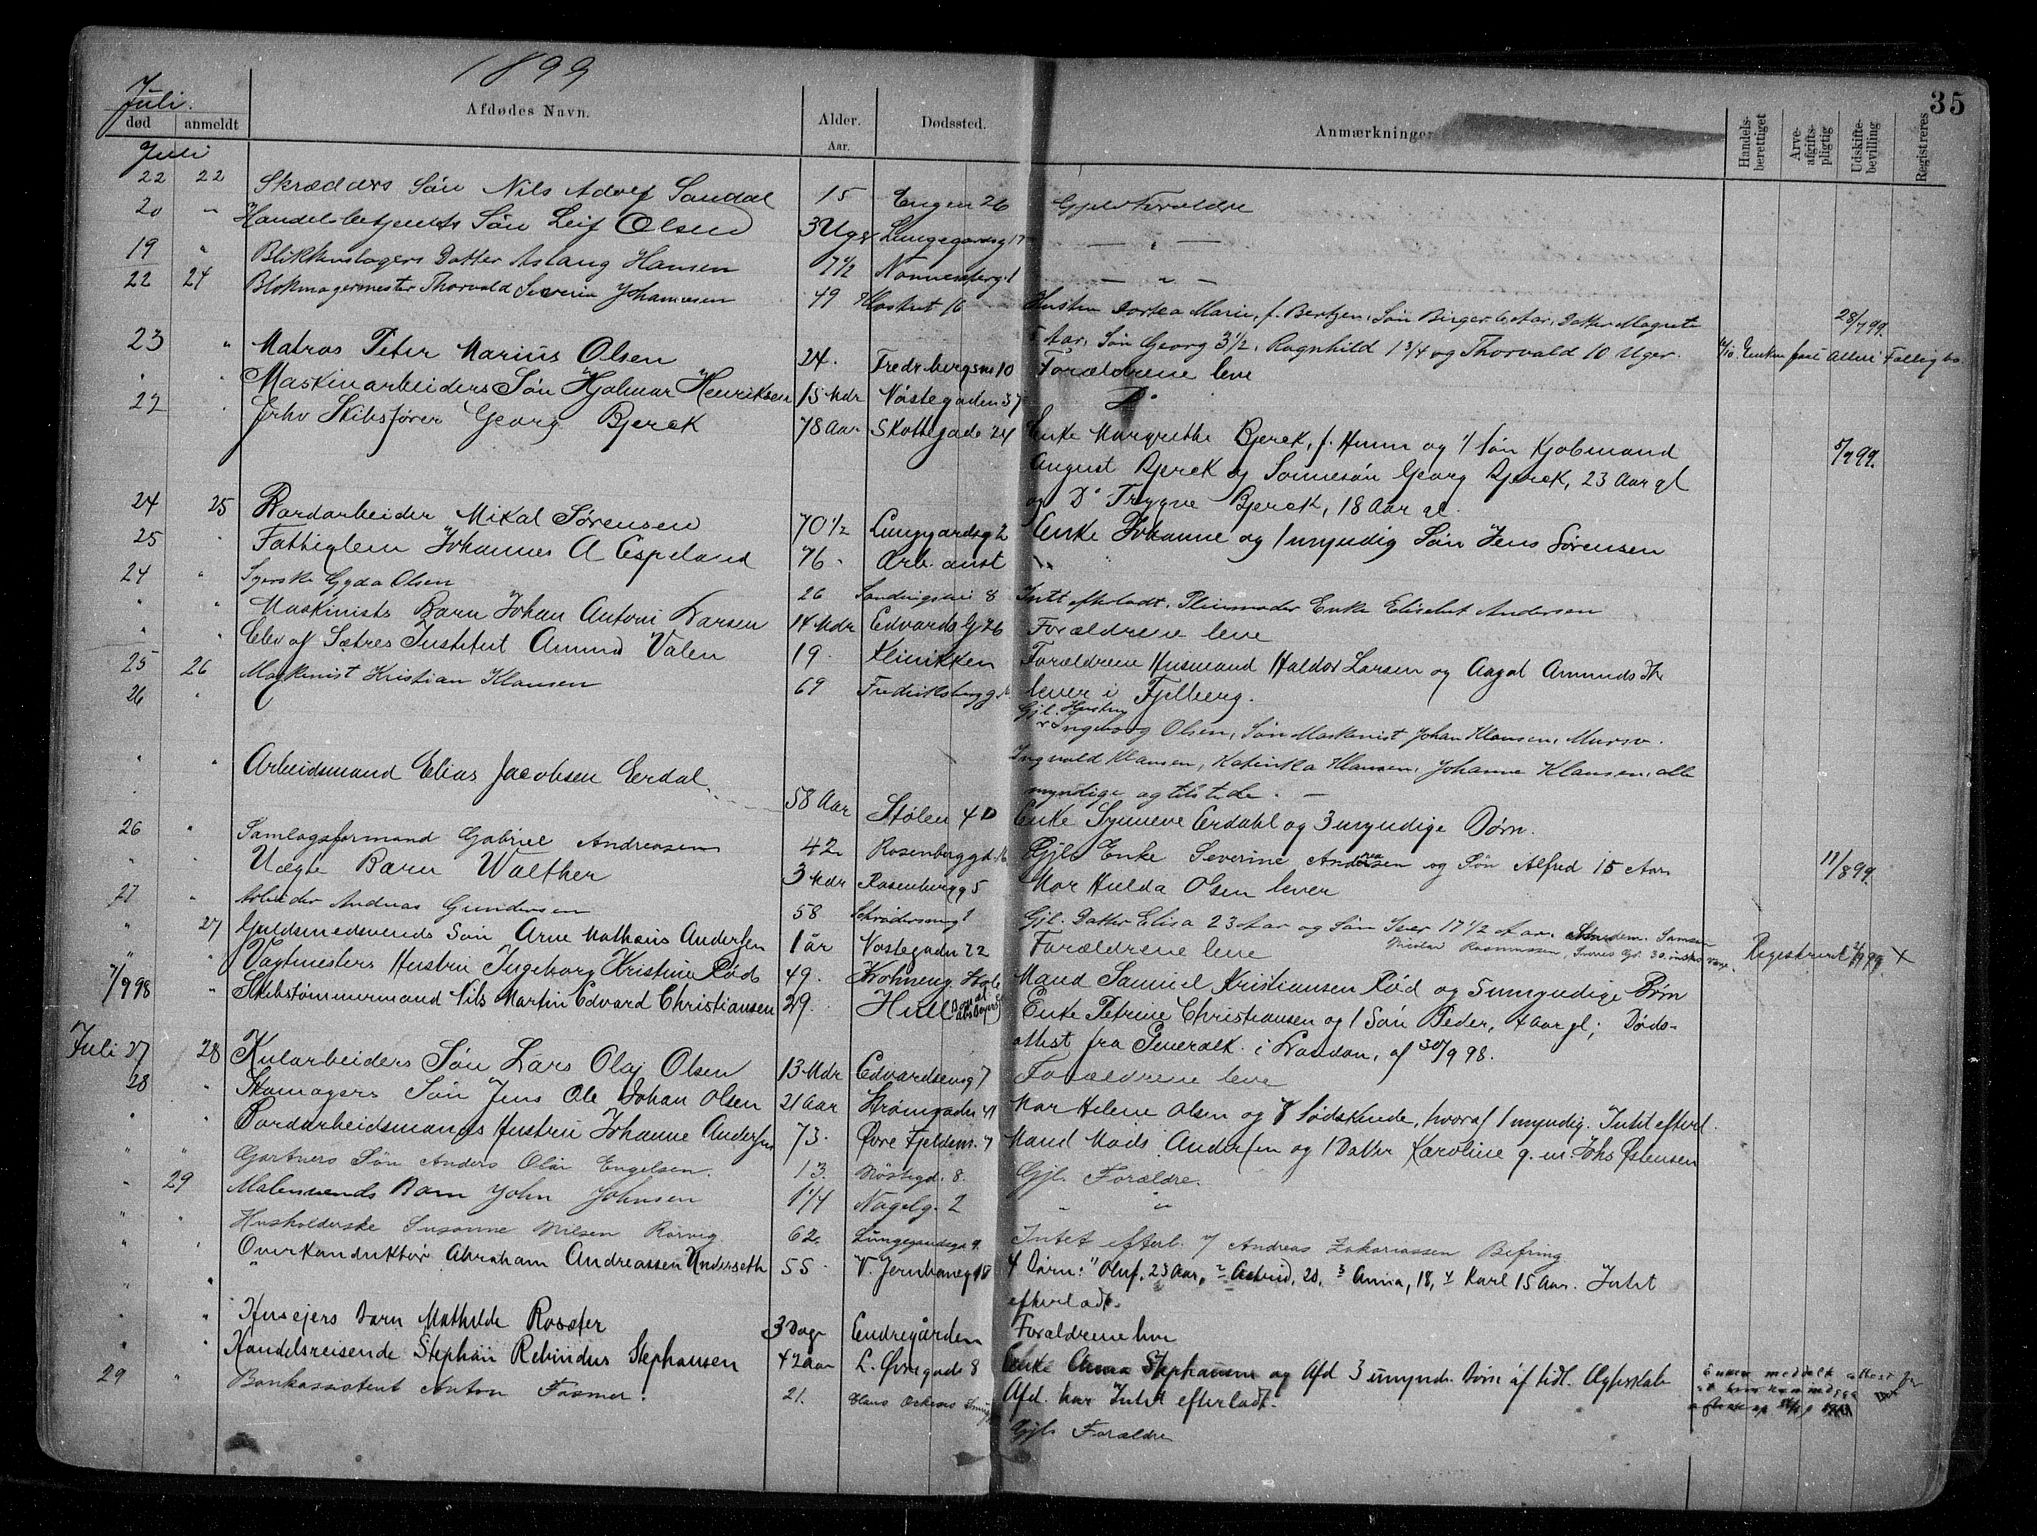 1899
35
Juli.
død anmeldt Afdødes Navn. Alder. Aar. Dødssted. Anmærkninger Handels-berettiget Arve-afgifts-pligtig Udskifte-bevilling Registreres
Juli
22 22 Skrædders Søn Nils Adolf Sandal 15 Engen 26 Gjenl. Forældre
20 " Handelsbetjents Søn Leif Olsen 3 Uger Lungegardsg 17 — " —
19 " Blikkenslagers Datter Aslaug Hansen 7 1/2 Nonnesberg 1 — " —
22 24 Blokmagermester Thorvald Severin Johannesen 49 Klostret 16 Hustru Dortea Marie, f. Bertzen, Søn Birger 6 Aar, Datter Magrete 28/7 99.
5 Aar, Søn Georg 3 1/2, Ragnhild 1 3/4 og Thorvald 10 Uger.
23 " Matros Peter Marius Olsen 24. Fredr.bergsm 10 Forældrene leve
" " Maskinarbeiders Søn Hjalmar Henriksen 15 Mdr Nøstegaden 37 Do
22 " Fhv Skibsfører Georg Bjerck 78 Aar Skottegade 24 Enke Margrethe Bjerck, f. Humm og 1 Søn Kjøbmand 5/7 99.
August Bjerck og Sønnesøn Georg Bjerck, 23 Aar gl
og Do Trygve Bjerck, 18 Aar gl.
24 25 Bordarbeider Mikal Sørensen 70 1/2 Lungegardsg 2 Enke Johanne og 1 myndig Søn Jens Sørensen
25 " Fattiglem Johannes A Espeland 76 " Arb. anst "
24 " Syerske Gyda Olsen 26 Sandvigsvei 8 Intet efterladt. Pleiemoder Enke Elisabet Andersen
" " Maskinists Barn Johan Antoni Larsen 14 Mdr Edvards G 26 Forældrene leve
" " Elev af Sætres Institut Amund Valen 19. Klinikken Forældrene Husmand Haldor Larsen og Aagot Amunds Dtr
lever i Fjelberg.
25 26 Maskinist Kristian Klausen 69 Fredriksbergg Gjl. Hustru Ingeborg Olsen, Søn Maskinist Johan Klausen, Mursv.
Ingvald Klausen, Katinka Klausen, Johanne Klausen, alle
myndige og tilstede. —
26 "
" " Arbeidsmand Elias Jacobsen Erdal 58 Aar Stølen 4 D Enke Synneve Erdahl og 3 umyndige Børn.
26 " Samlagsformand Gabriel Andreasen 42 Rosenberggd. 16 Gjl. Enke Severine Andreasen og Søn Alfred 15 Aar 11/8 99.
" " Uægte Barn Walther 3 Mdr Rosenbergg 5 Mor Hulda Olsen lever
27 " Arbeider Andreas Gundersen 58 Gjl. Datter Elisa 23 Aar og Søn Iver 17 1/2 Aar.
" 27 Guldsmedsvends Søn Arne Mathæus Andersen 1 år Nøstegaden 22 Forældrene leve
" " Vagtmesters Hustru Ingeborg Kristine Rød 49. Kroneng. Mand Samuel Kristiansen Rød og 5 umyndige Børn Registreret
7/9 98 " Skibstømmermand Nils Martin Edvard Christiansen 29 Hull Enke Petrine Christiansen og 1 Søn Peder, 4 aar gl; Døds-
attest fra Generalk. i London, af 30/9 98.
Juli 27 28 Kularbeiders Søn Lars Olaj Olsen 13 Mdr Edvardsensg 7 Forældrene leve
28 " Skomagers Søn Jens Ole Johan Olsen 21 Aar Strømgaden 41 Mor Helene Olsen og 8 Sødskende, hvoraf 1 myndig. Intet efterl.
" " Bordarbeidsmands Hustru Johanne Andersen 73. Øvre Fjeldsm. 7 Mand Mads Andersen og 1 Datter Karoline g. m. Johs Østensen
" " Gartners Søn Anders Olai Engelsen 13. Nøstegd. 8. Gjl. Forældre.
" 29 Malersvends Barn John Johnsen 1 1/4 Nagelg. 2 " "
" " Husholderske Susanne Nilsen Rørvig 62 Lungegardsga 9. Intet efterl. Andreas Zakariassen Befring
" " Overkonduktør Abraham Andreassen Underseth 55 V. Jernbaneg 18 4 Børn: 1 Oluf, 23 Aar, 2 Astrid, 20, 3 Anna, 18, 4 Karl 15 Aar. Intet
efterladt.
" " Huseiers Barn Mathilde 3 Dage Endregården Forældrene leve
" " Handelsreisende Stephan Rebinder Stephansen 42 aar L. Øvregade 8 Enke Anna Stephansen og Afd 3 umynd. Børn af tidl. Ægteskab
Afd. har Intet efterladt.
29 " Bankassistent Anton Fasmer. 21. Gjl. Forældre